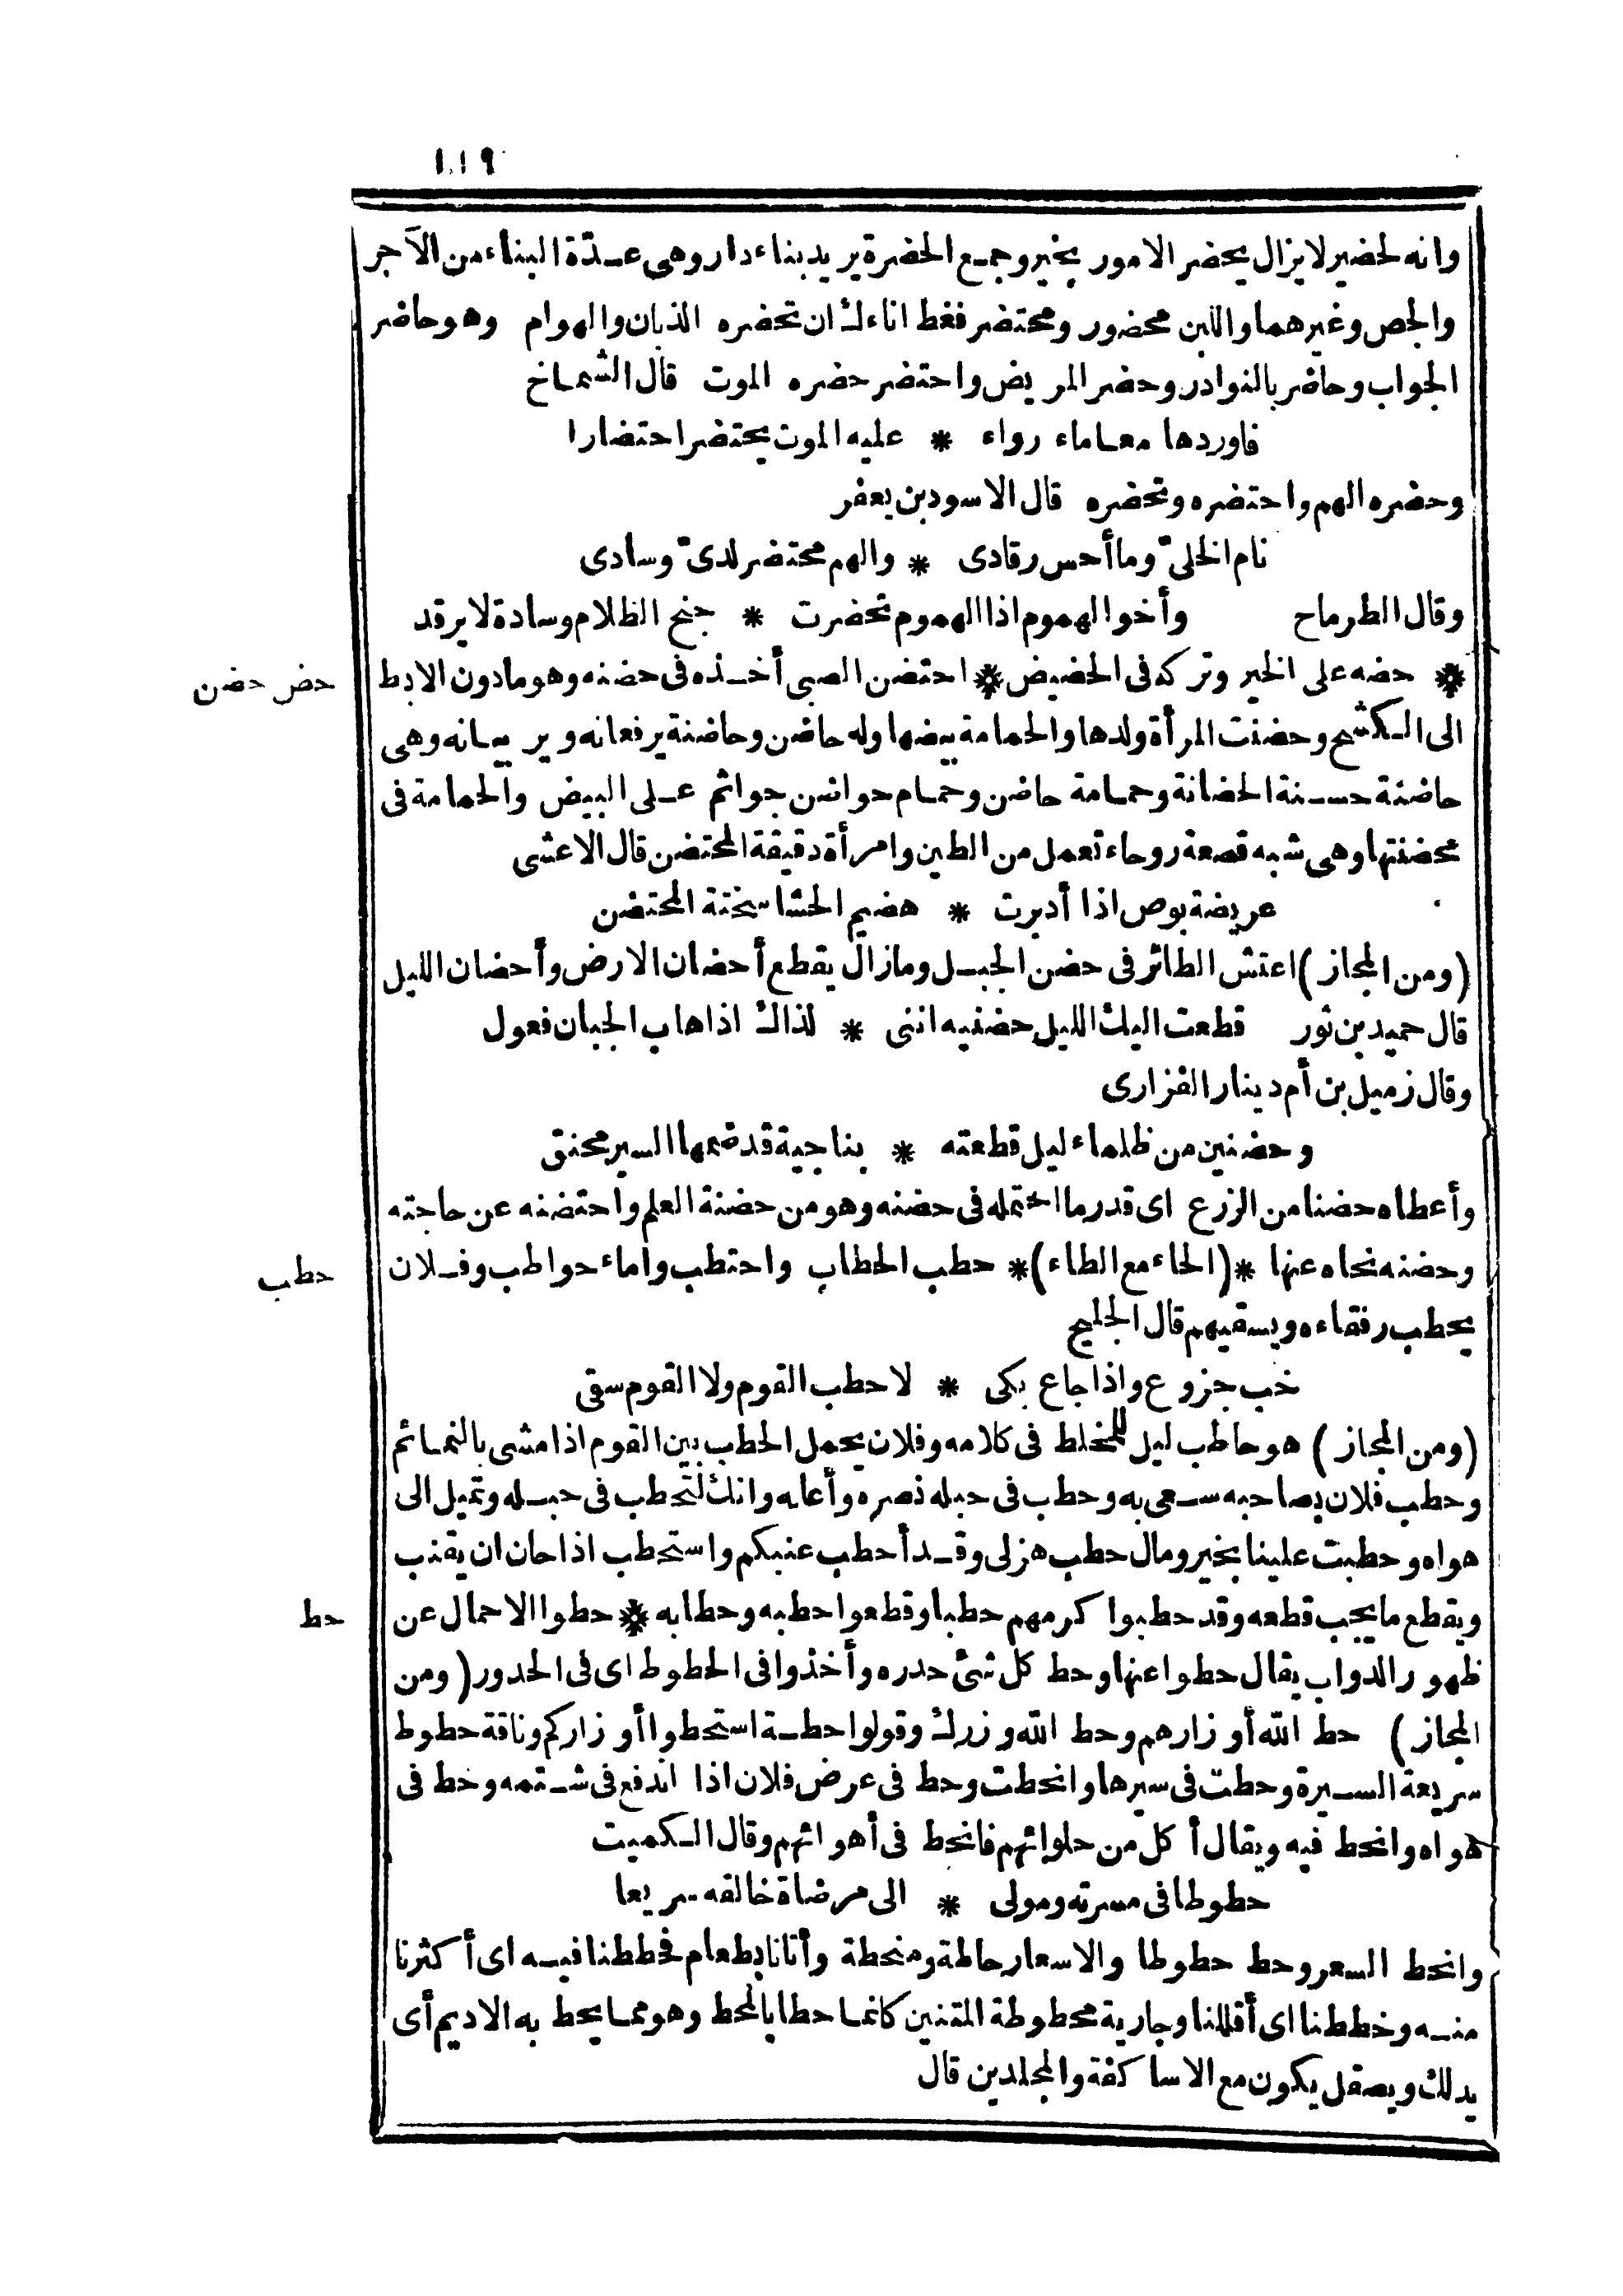 ١١٩
وانه لحضير لا يزال يحضر الامور بخير وجمع الحضرة يريد بناء دار وهي عدّة البناء من الآجر
والجص وغيرهما واللبن محضور ومحتضر فغط اناءك ان تحضره الذبان والهوام وهو حاضر
الجواب وحاضر بالنوادر وحضر المريض واحتضر حضره الموت قال الشماخ
فاوردها معا ماء رواء * عليه الموت يحتضر احتضارا
وحضره الهم واحتضره وتحضره قال الاسود بن يعفر
نام الخليّ وما أحس رقادى * والهم محتضر لدىّ وسادى
وقال الطرماح وأخو الهموم اذا الهموم تحضرت * جنح الظلام وسادة لا يرقد
حض حضن
* حضه على الخير وتركه فى الحضيض * احتضن الصبى أخذه فى حضنه وهو مادون الابط
الى الكشح وحضنت المرأة ولدها والحمامة بيضها وله حاضن وحاضنة يرفعانه ويربيانه وهى
حاضنة حسنة الحضانة وحمامة حاضن وحمام حواضن جواثم على البيض والحمامة فى
محضنتها وهى شبه قصعة روحاء تعمل من الطين وامرأة دقيقة المحتضن قال الاعشى
عريضة بوص اذا أدبرت * هضيم الحشا سخنة المحتضن
(ومن المجاز) اعتش الطائر فى حضن الجبل وما زال يقطع أحضان الارض وأحضان الليل
قال حميد بن ثور قطعت اليك الليل حضنيه اننى * لذاك اذا هاب الجبان فعول
وقال زميل بن أم دينار الفزارى
وحضنين من ظلماء ليل قطعته * بناجية قد ضمها السير محنق
وأعطاه حضنا من الزرع اى قدر ما احتمله فى حضنه وهو من حضنة العلم واحتضنه عن حاجته
حطب
وحضنه نحاه عنها *(الحاء مع الطاء)* حطب الحطاب واحتطب واماء حواطب وفلان
يحطب رفقاءه ويسقيهم قال الجليح
خب جزوع واذا جاع بكى * لا حطب القوم ولا القوم سقى
(ومن المجاز) هو حاطب ليل للمخلط فى كلامه وفلان يحمل الحطب بين القوم اذا مشى بالنمائم
وحطب فلان بصاحبه سعى به وحطب فى حبله نصره وأعانه وانك لتحطب فى حبله وتميل الى
هواه وحطبت علينا بخير ومال حطب هزلى وقد أحطب عنبكم واستحطب اذا حان ان يقنب
حط
ويقطع ما يجب قطعه وقد حطبوا كرمهم حطبا وقطعوا حطبه وحطابه * حطوا الاحمال عن
ظهور الدواب يقال حطوا عنها وحط كل شئ حدره وأخذوا فى الحطوط اى فى الحدور (ومن
المجاز) حط الله أوزارهم وحط الله وزرك وقولوا حطة استحطوا أوزاركم وناقة حطوط
سريعة السيرة وحطت فى سيرها وانحطت وحط فى عرض فلان اذا اندفع فى شتمه وحط فى
هواه وانحط فيه ويقال أكل من حلوائهم فانحط فى أهوائهم وقال الكميت
حطوطا فى مسرته ومولى * الى مرضاة خالقه سريعا
وانحط السعر وحط حطوطا والاسعار حاطة ومنحطة وأتانا بطعام فحططنا فيه اى أكثرنا
منه وخططنا اى أقللنا وجارية محطوطة المتنين كانما حطا بالمحط وهو مما يحط به الاديم أى
يدلك ويصقل يكون مع الاساكفة والمجلدين قال